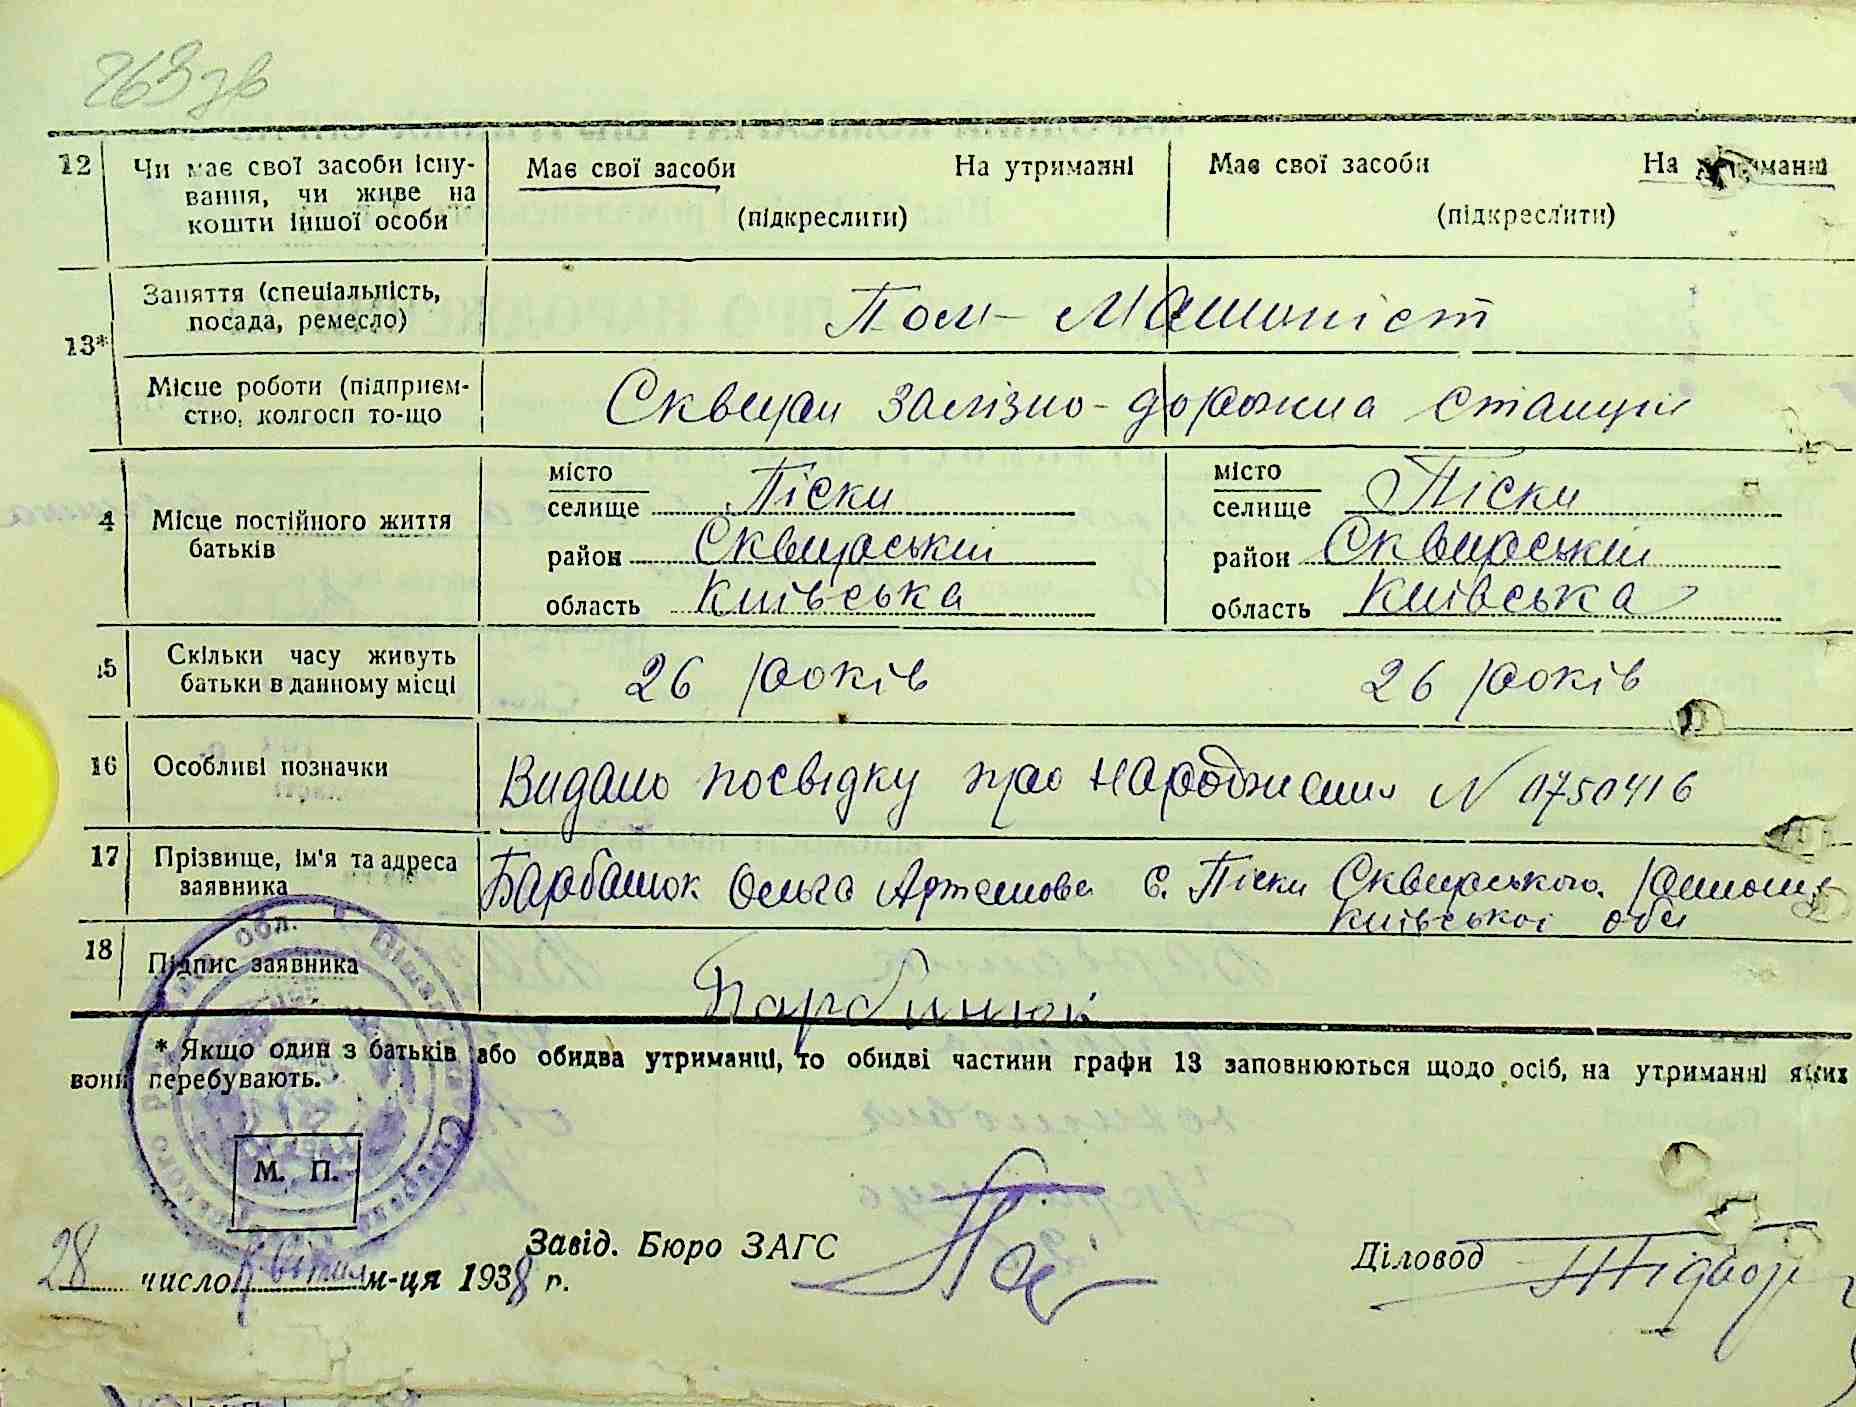 263 зв
12 Чи має свої засоби існування, чи живе на кошти іншої особи
Має свої засоби На утриманні Має свої засоби На утриманні
(підкреслити) (підкреслити)
13*
Заняття (спеціальність,
посада, ремесло)
Пом-Машиніст
Місце роботи (підприєм-
ство, колгосп то-що
Сквирси залізно-дорожна станція
4 Місце постійного життя
батьків
місто місто
селище Піски селище Піски
район Сквирський район Сквирський
область Київська область Київська
15 Скільки часу живуть
батьки в данному місці
26 років 26 років
16 Особливі позначки
Видано посвідку про народження N 0750416
17 Прізвище, ім'я та адреса
заявника
Барбанюк Ольга Артемова С. Піски Сквирського району
Київської обл
18 Підпис заявника
Барбинюк
* Якщо один з батьків або обидва утриманці, то обидві частини графи 13 заповнюються щодо осіб, на утриманні яких
вони перебувають.
М. П.
28 число квітня м-ця 1938 р.
Завід. Бюро ЗАГС
Діловод